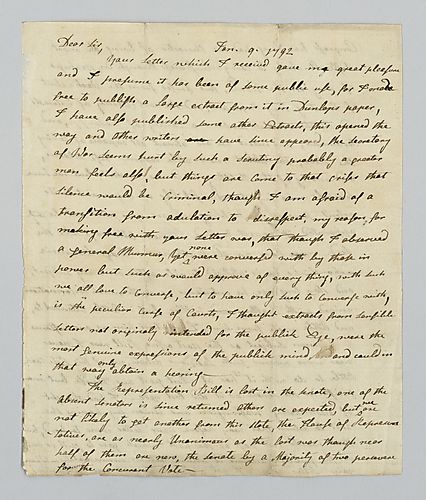 Dear Sir,
Jan. 9. 1792
Your Letter which I received gave me great pleasure
and I presume it has been of some public use, for I made
free to publish a Large extract from it in Dunlaps paper,
I have also published some other Extracts, this opened the
way and other writers have since appeard, the Secretary
of War seems hurt by such a scrutiny probably a greater
man feels also, but things are come to that crisis that
Silence would be Criminal, though I am afraid of a
transition from adulation to disrespect, my reason for
making free with your Letter was, that though I observed
a general Murmur, yet none were conversed with by those in
power but such as would approve of every thing, with such
we all love to converse, but to have only such to converse with,
is the peculiar Curse of Courts, I thought extracts from sensible
Letters not originaly intended for the publick Eye, were the
most genuine expressions of the publick mind, and could in
that way only obtain a hearing—
The Representation Bill is lost in the Senate, one of the
absent Senators is since returned others are expected, but are
not likely to get another from this state, the House of Represen
tatives, are as nearly Unanimous as the last was though near
half of them are new, the Senate by a Majority of two persevere
for the Concurent Vote—